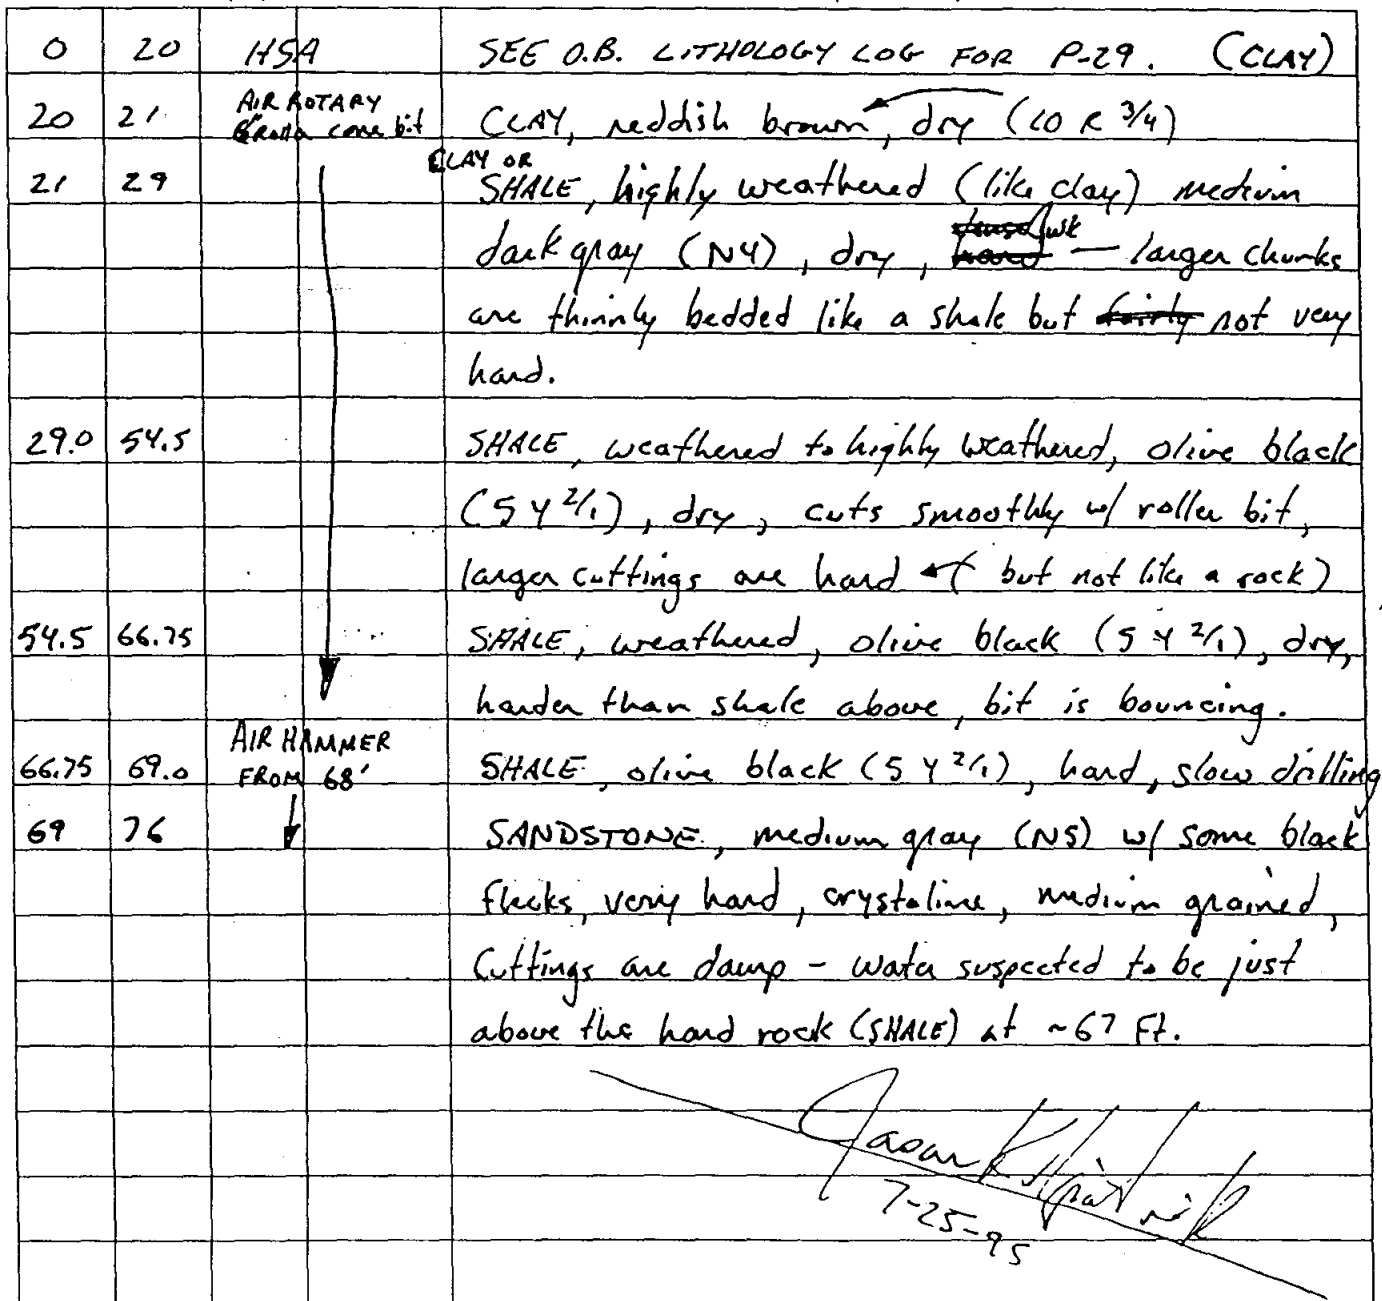 0 20 HSA SEE O.B. LITHOLOGY LOG FOR P-29. (CLAY)
20 21 AIR ROTARY CLAY, reddish brown, dry (10 R 3/4)
cone bit
CLAY OR
21 29 SHALE, highly weathered (like clay) medium
dark gray (N4), dry, hard — larger chunks
are thinnly bedded like a shale but fairly not very
hard.
29.0 54.5 SHALE, weathered to highly weathered, olive black
(5 Y 2/1), dry, cuts smoothly w/ roller bit,
larger cuttings are hard (but not like a rock)
54.5 66.75 SHALE, weathered, olive black (5 Y 2/1), dry,
harder than shale above, bit is bouncing.
AIR HAMMER
66.75 69.0 FROM 68' SHALE, olive black (5 Y 2/1), hard, slow drilling
69 76 SANDSTONE, medium gray (N5) w/ some black
flecks, very hard, crystaline, medium grained,
Cuttings are damp - water suspected to be just
above the hard rock (SHALE) at ~67 Ft.
7-25-95